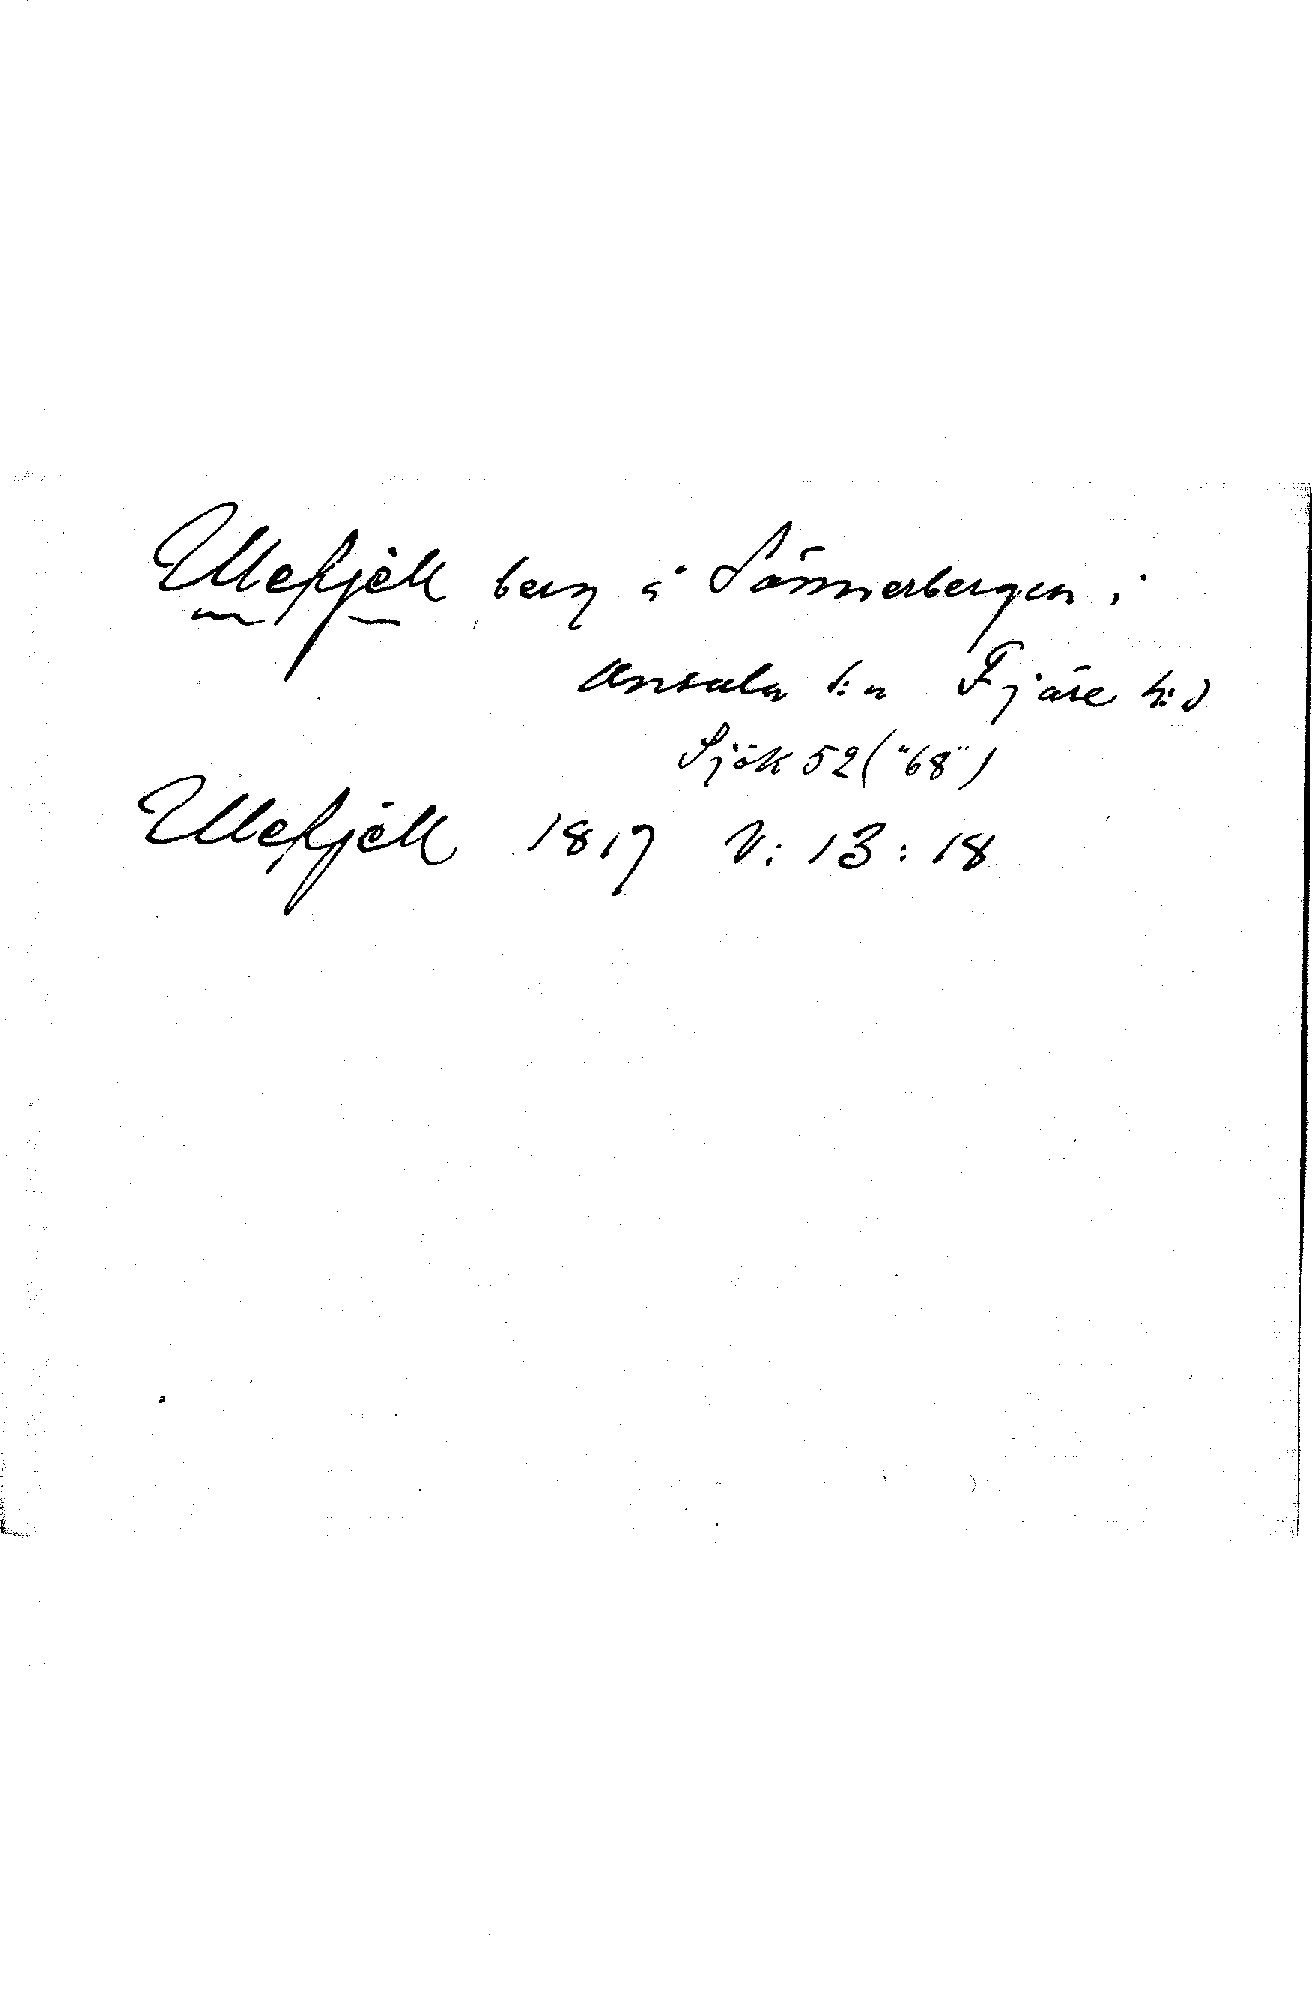 Ullefjäll berg å Sönnerbergen i
Onsala s:n Fjäre h:d
Sjök 52 ("68")
Ullefjäll 1817 V: 13: 18